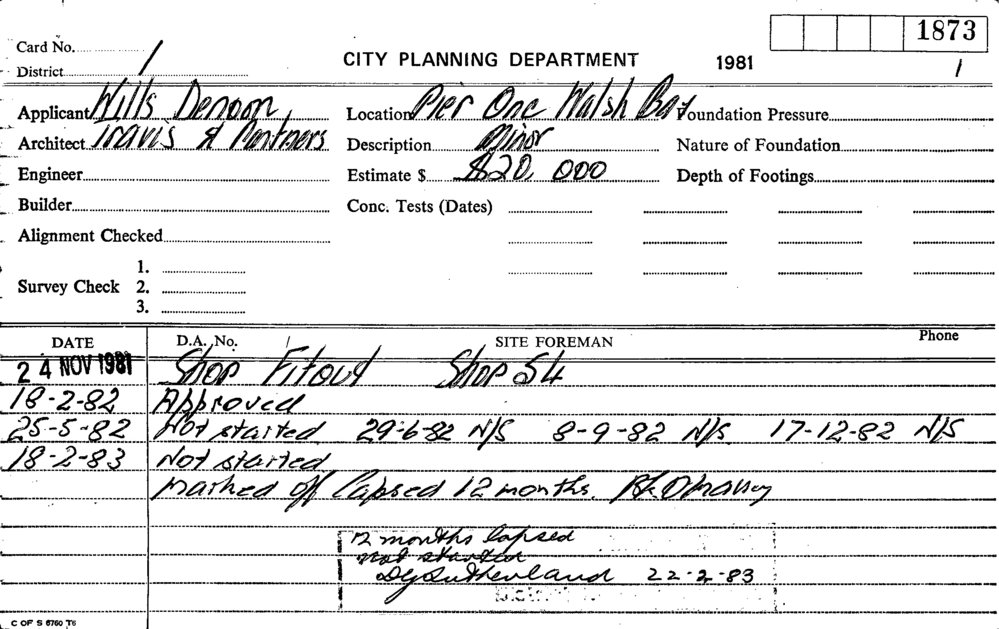 1873
Card No. 1
CITY PLANNING DEPARTMENT 1981 1
District
Applicant Wills Denoon Location Pier One Walsh Bay Foundation Pressure
Architect Travis & Partners Description Minor Nature of Foundation
Engineer Estimate $ $20,000 Depth of Footings
Builder Conc. Tests (Dates)
Alignment Checked
1.
Survey Check 2.
3.
DATE D.A. No. SITE FOREMAN Phone
24 NOV 1981 Shop Fitout Shop S4
18-2-82 Approved
25-5-82 Not started 29-6-82 N/S 8-9-82 N/S 17-12-82 N/S
18-2-83 Not started
marked off Lapsed 12 months.
12 months lapsed
not started
DG Sutherland 22-2-83
C OF S 6760 T6